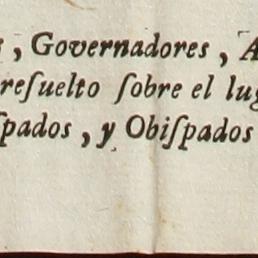 , Governadores, A
resuelto sobre el lug
spados, y Obispados